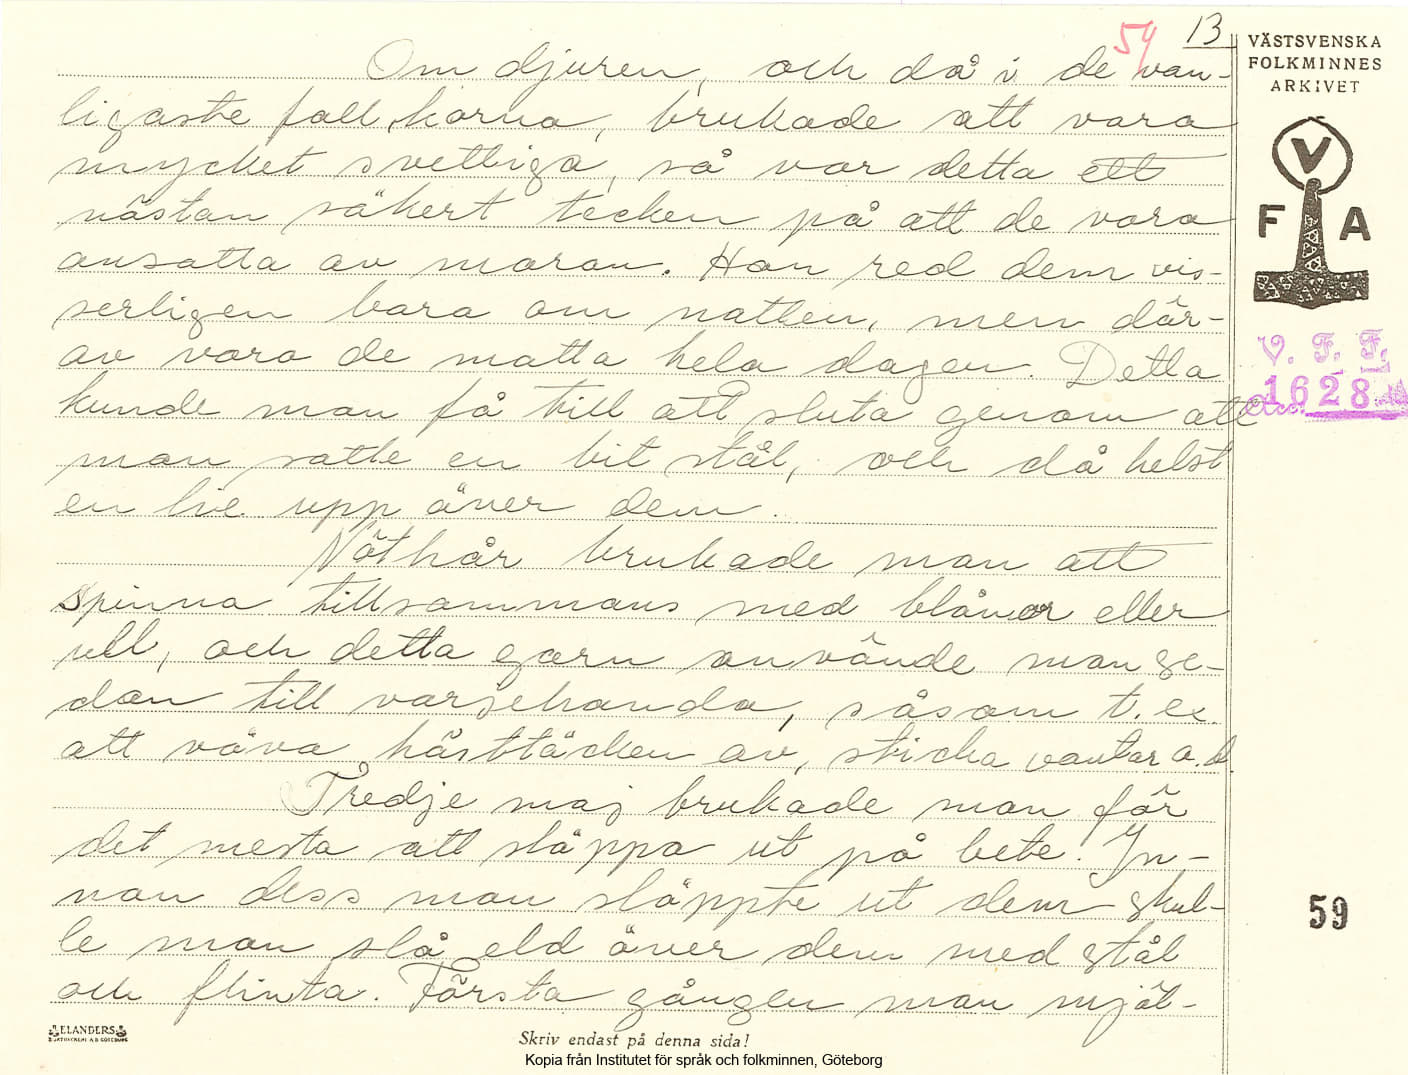 54 13
VÄSTSVENSKA
FOLKMINNES
ARKIVET
V
F A
V. F. F.
1628
Om djuren, och då i de van-
ligaste fall, korna, brukade att vara
mycket svettiga, så var detta ett
nästan säkert tecken på att de vara
ansatta av maran. Hon red dem vis-
serligen bara om natten, men där-
av vara de matta hela dagen. Detta
kunde man få till att sluta genom att
man satte en bit stål, och då helst
en lie upp över dem.
Nöthår brukade man att
spinna tillsammans med blånor eller
ull, och detta garn använde man se-
dan till varjehanda, såsom t. ex.
att väva hästtäcken av, sticka vantar o. d.
Tredje maj brukade man för
det mesta att släppa ut på bete. In-
nan dess man släppte ut dem skul-
le man slå eld över dem med stål
och flinta. Första gången man mjöl-
59
ELANDERS
BOKTRYCKERI A.B. GÖTEBORG
Skriv endast på denna sida!
Kopia från Institutet för språk och folkminnen, Göteborg